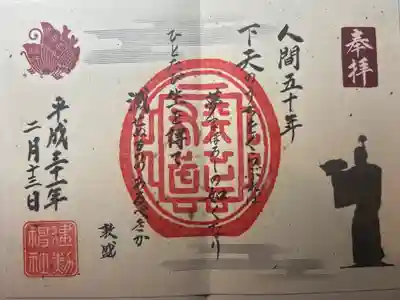 奉拝
人間五十年
下天のうちをくらぶれば
夢まぼろしの如くなり
ひとたび生を得て
滅せぬもののあるべきか
敦盛
平成三十一年
二月十三日
建勲神社